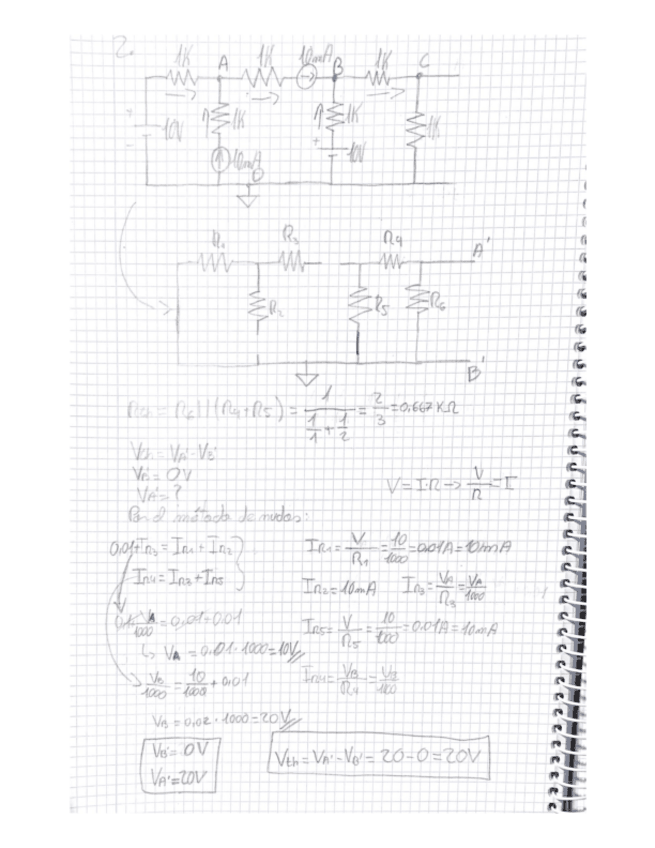 2.
1K A 1K 10mA B 1K C
10V 1K 1K 1K
10mA 10V
R1 R3 R4 A'
R2 R5 R6
B'
Rth = R6 || (R4+R5) = 1 / (1/1 + 1/2) = 2/3 = 0,667 KΩ
Vth = VA' - VB'
VB' = 0V
VA' = ? V = I·R -> V/R = I
Por el método de nudos:
IR3 = IR1 + IR2 IR1 = V/R1 = 10/1000 = 0.01A = 10mA
IR4 = IR3 + IR5 IR2 = 10mA IR3 = VA/R3 = VA/1000
VA/1000 = 0,01 + 0.01 IR5 = V/R5 = 10/1000 = 0.01A = 10mA
VA = 0,01 · 1000 = 10V
VB/1000 = 10/1000 + 0,01 IR4 = VB/R4
VB = 0,02 · 1000 = 20V
VB' = 0V
VA' = 20V
Vth = VA' - VB' = 20 - 0 = 20V